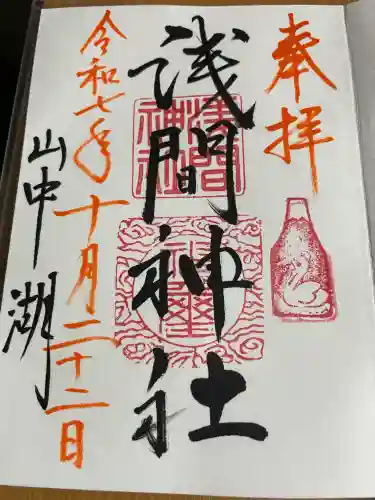 奉拝
浅間神社
浅間神社
山中湖
令和七年十月二十二日